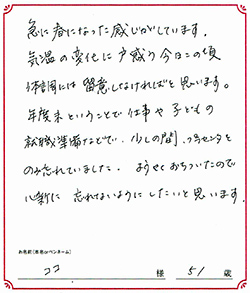 急に春になった感じがしています。
気温の変化に戸惑う今日この頃
体調には留意しなければと思います。
年度末ということで仕事や子どもの
就職準備などで、少しの間、プラセンタを
のみ忘れていました。ようやくおちついたので
心新に 忘れないようにしたいと思います。
お名前(本名orペンネーム)
ココ 様 51 歳